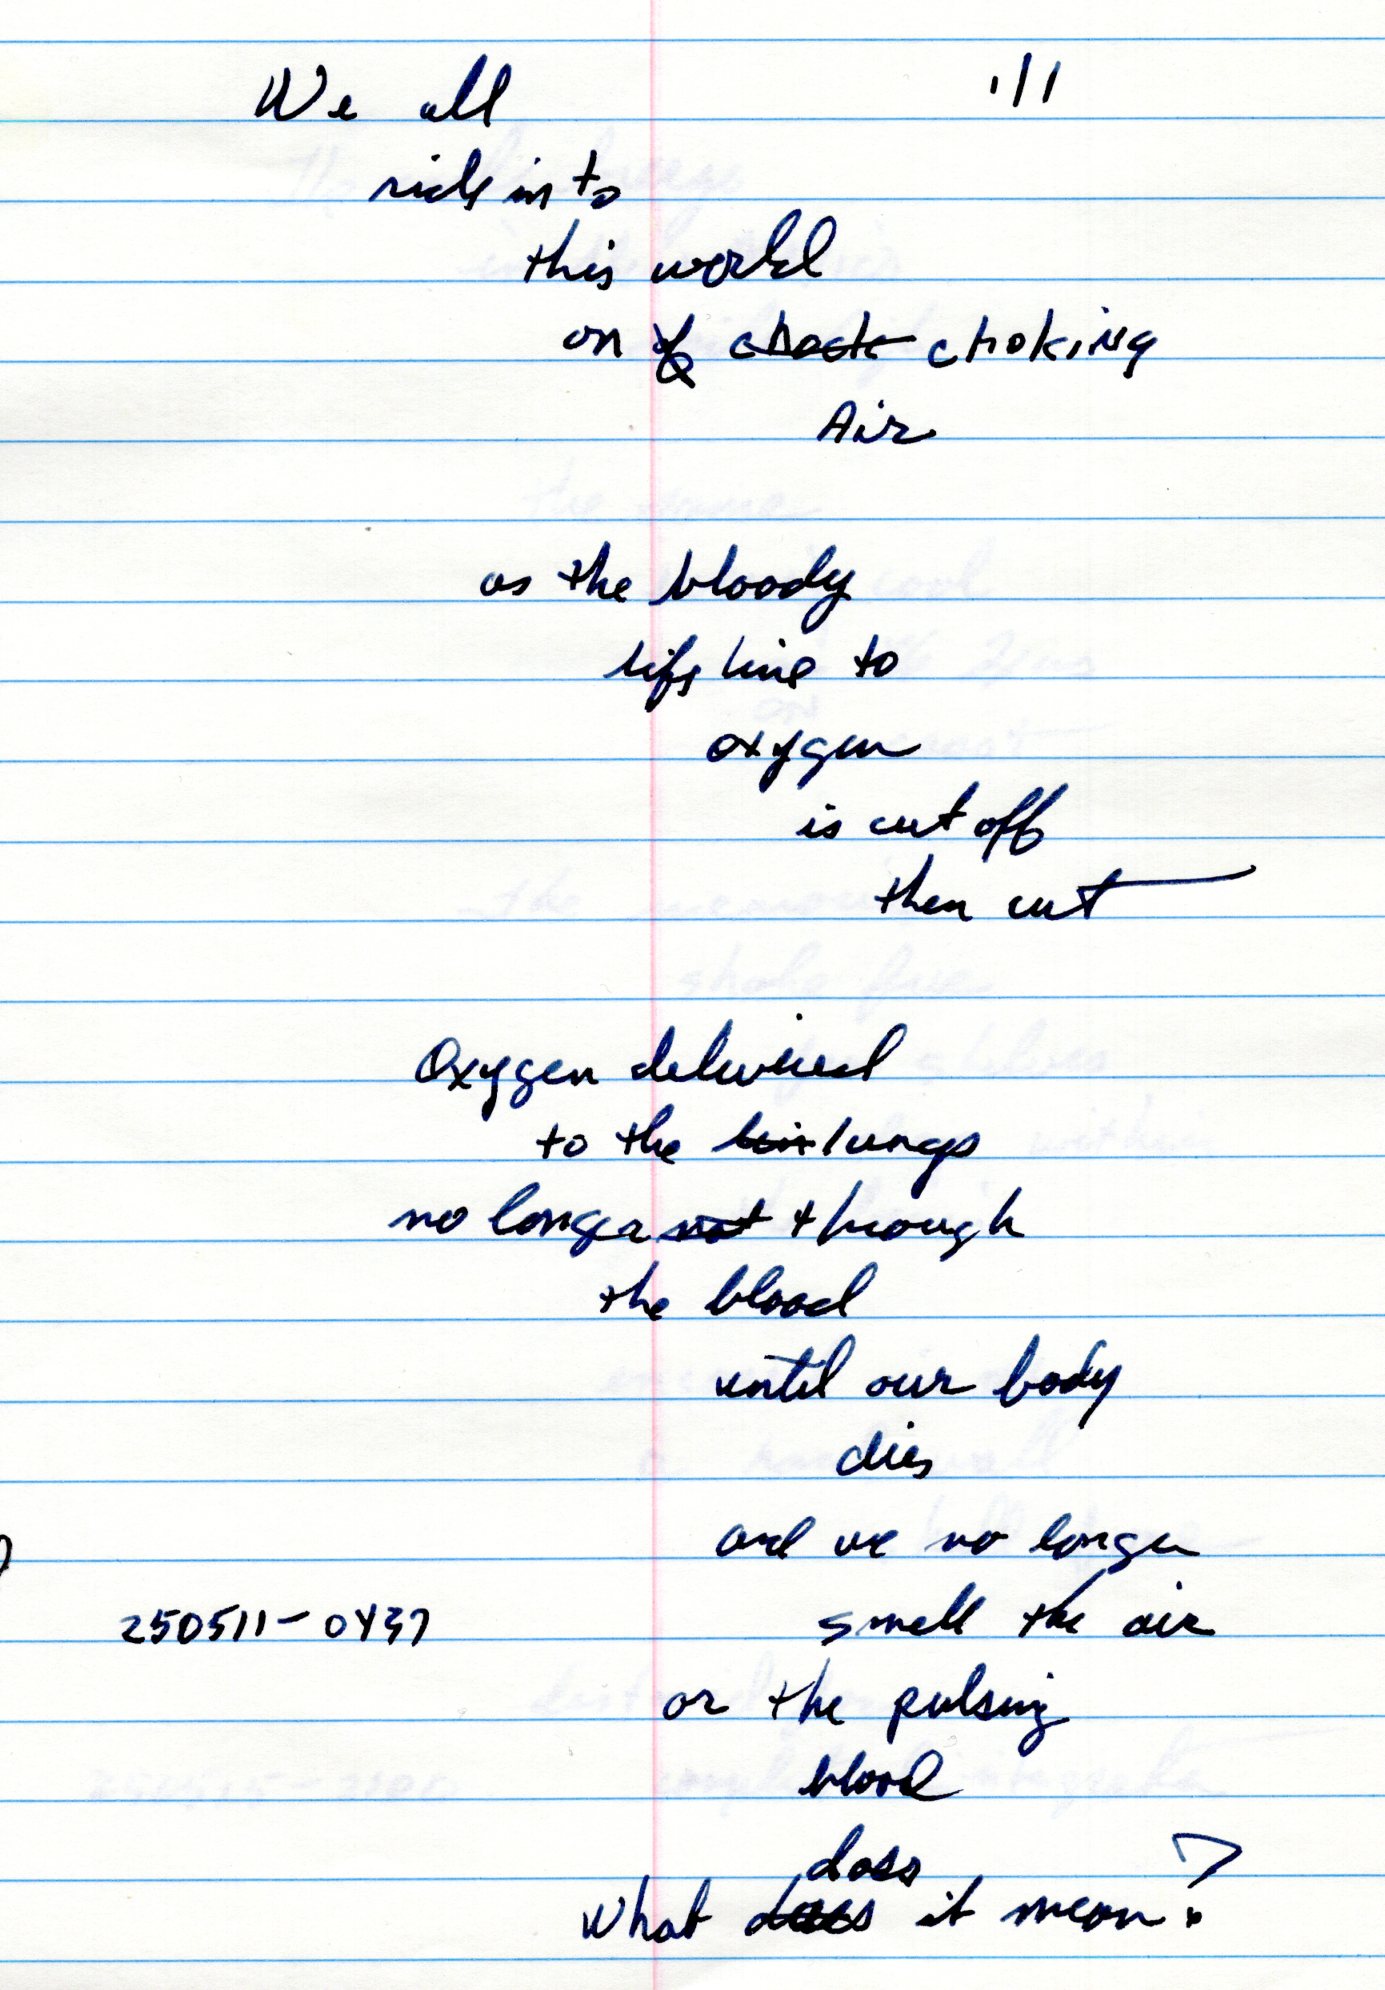 We all 1/1
ride into
this world
on choking
Air
as the bloody
life line to
oxygen
is cut off
then cut
Oxygen delivered
to the lungs
no longer not through
the blood
until our body
dies
and we no longer
smell the air
250511-0437
or the pulsing
blood
does
What does it mean?